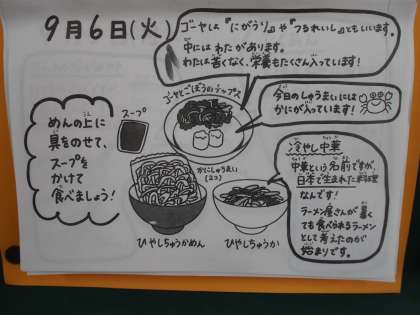 9月6日(火)
ゴーヤは『にがうり』や『つるれいし』ともいいます。
中にはわたがあります。
わたは苦くなく、栄養もたくさん入っています!
ゴーヤとごぼうのチップス
今日のしゅうまいには
かにが入っています!
めんの上に
具をのせて、
スープを
かけて
食べましょう!
スープ
かにしゅうまい
(2コ)
ひやしちゅうかめん
ひやしちゅうか
冷やし中華
中華という名前ですが、
日本で生まれた料理
なんです!
ラーメン屋さんが暑く
ても食べられるラーメン
として考えたのが
始まりです。